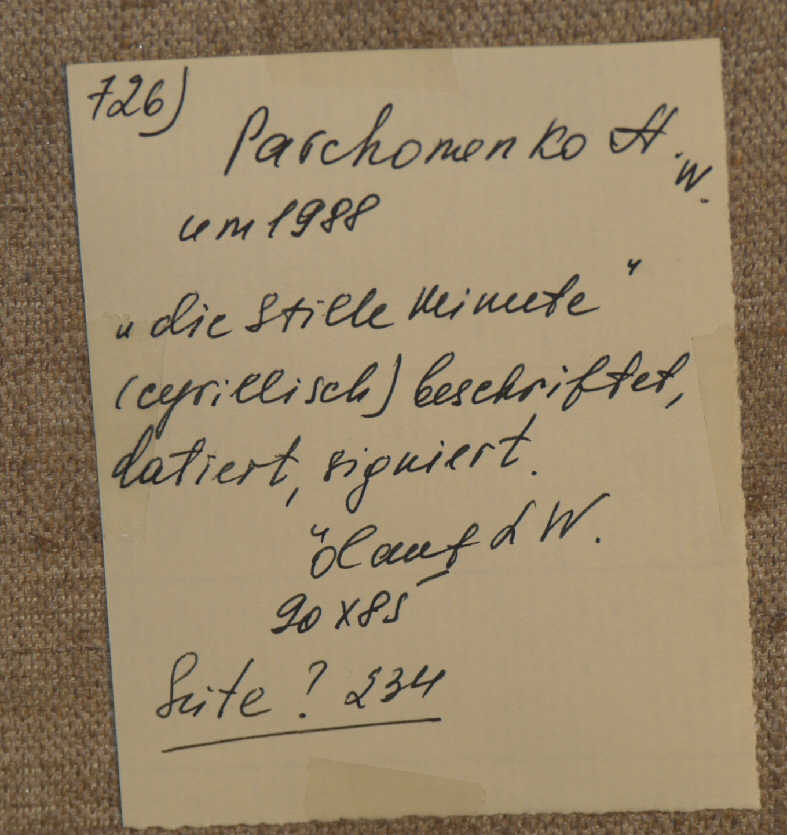 726)
Parchomenko A. W.
um 1988
„die Stille Minute“
(cyrillisch) beschriftet,
datiert, signiert.
Öl auf LW.
90 x 85
Seite ? 234